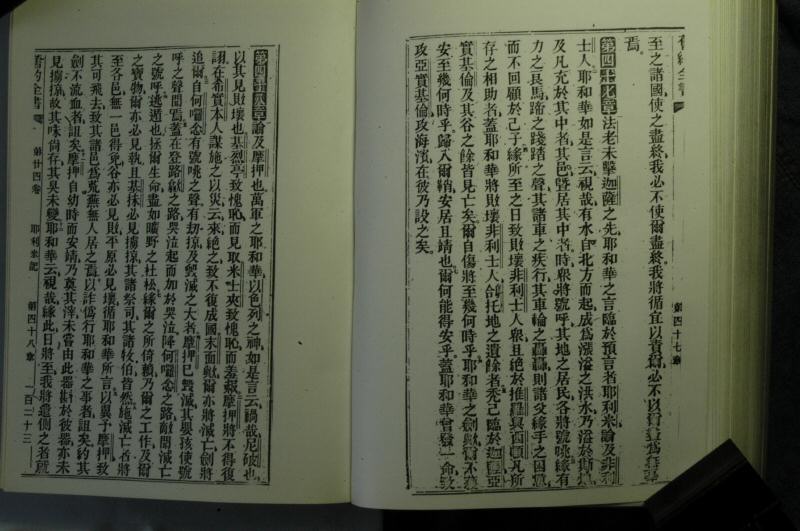 至之諸國使之盡終我必不使爾盡終我將循宜以責爾必不以爾
焉
第四十七章法老未擊迦薩之先耶和華之言臨於預言者耶利米論及非利
士人耶和華如是言云視哉有水自北方而起成爲漲溢之洪水乃溢於斯地
及凡充於其中者其邑曁居其中者時衆將號呼其地之居民各將號咷緣有
力之馬蹄之踐踏之聲其諸車之疾行其車輪之轟轟則諸父緣手之困憊
而不回顧於己子緣所至之日致敗壞非利士人衆且絕於推羅與西頓凡所
存之相助者蓋耶和華將敗壞非利士人迦托地之遺餘者禿己臨於迦薩亞
實基倫及其谷之餘皆見亡矣爾自傷將至幾何時乎耶和華之劍歟爾不
安至幾何時乎歸入爾鞘安居且靖也爾何能得安乎蓋耶和華曾發一命致
攻亞實基倫攻海濱在彼乃設之矣
第四十八章論及摩押也萬軍之耶和華以色列之神如是言云禍哉尼破也
以其見敗壞也基烈亭致愧恥而見取米士夾致愧恥而羞赧摩押將不得復
詡在希實本人謀施之以災云來絕之致不復成國末面歟爾亦將滅亡劍將
追爾自何囉念有號咷之聲有刼掠及毀滅之大者摩押已毀滅其嬰孩使號
呼之聲聞焉蓋在登路歇之路哭泣起而加於哭泣降何囉念之路敵聞滅亡
之號呼逃遁也拯爾生命盡如曠野之杜松緣爾之所倚賴乃爾之工作及爾
之寶物爾亦必見執且基抹必見擄掠其諸祭司其諸牧伯皆然絕滅亡者將
至各邑無一邑得免谷亦必見敗平原必見壞循耶和華所言以翼予摩押致
其可飛去致其諸邑爲荒蕪無人居之焉以詐僞行耶和華之事者詛矣約其
劍不流血者詛矣摩押自幼時而安靖乃奠其滓未嘗由此器斟於彼器亦未
見擄掠故其味尚存其臭未變耶和華云視哉緣此日將至我將遣側之者
舊約全書
第廿四卷
耶利米記
第四十八章
一百二十三
舊約全書
第四十七章